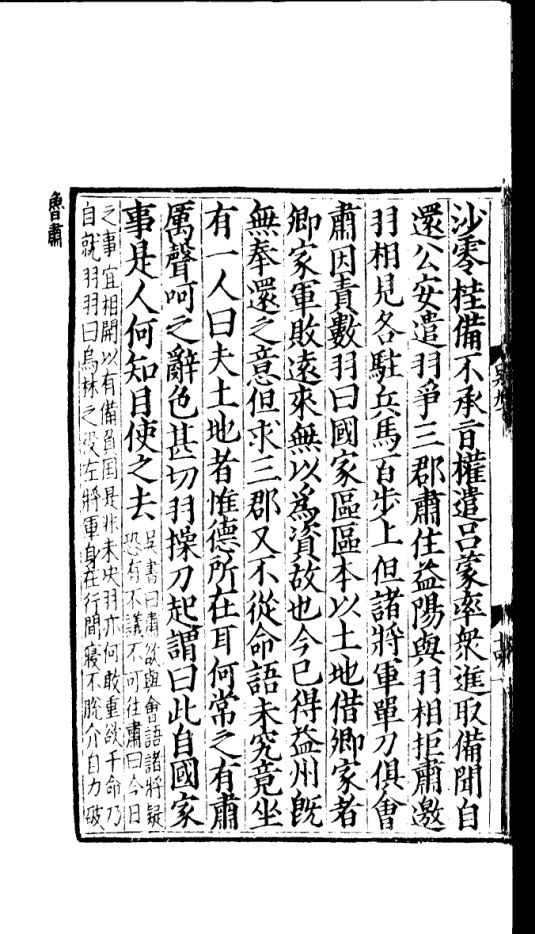 沙零桂備不承旨權遣呂蒙率衆進取備聞自
還公安遣羽爭三郡肅住益陽與羽相拒肅邀
羽相見各駐兵馬百步上但諸將軍單刀俱會
肅因責數羽曰國家區區本以土地借卿家者
卿家軍敗遠來無以爲資故也今已得益州旣
無奉還之意但求三郡又不從命語未究竟坐
有一人曰夫土地者惟德所在耳何常之有肅
厲聲呵之辭色甚切羽操刀起謂曰此自國家
事是人何知目使之去
吳書曰肅欲與會語諸將疑
恐有不議不可往肅曰今日
之事宜相開以有備負國是非未决羽亦何敢重欲干命乃
自就羽羽曰烏林之役左將軍身在行間寢不脫介自力破
魯肅